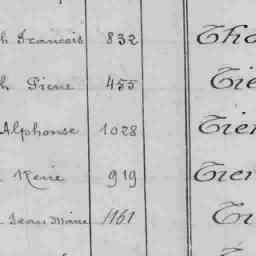 h François 832 Tho
h Pierre 455 Tie
Alphonse 1028 Tier
René 919 Tier
Jean Marie 1161 Ti